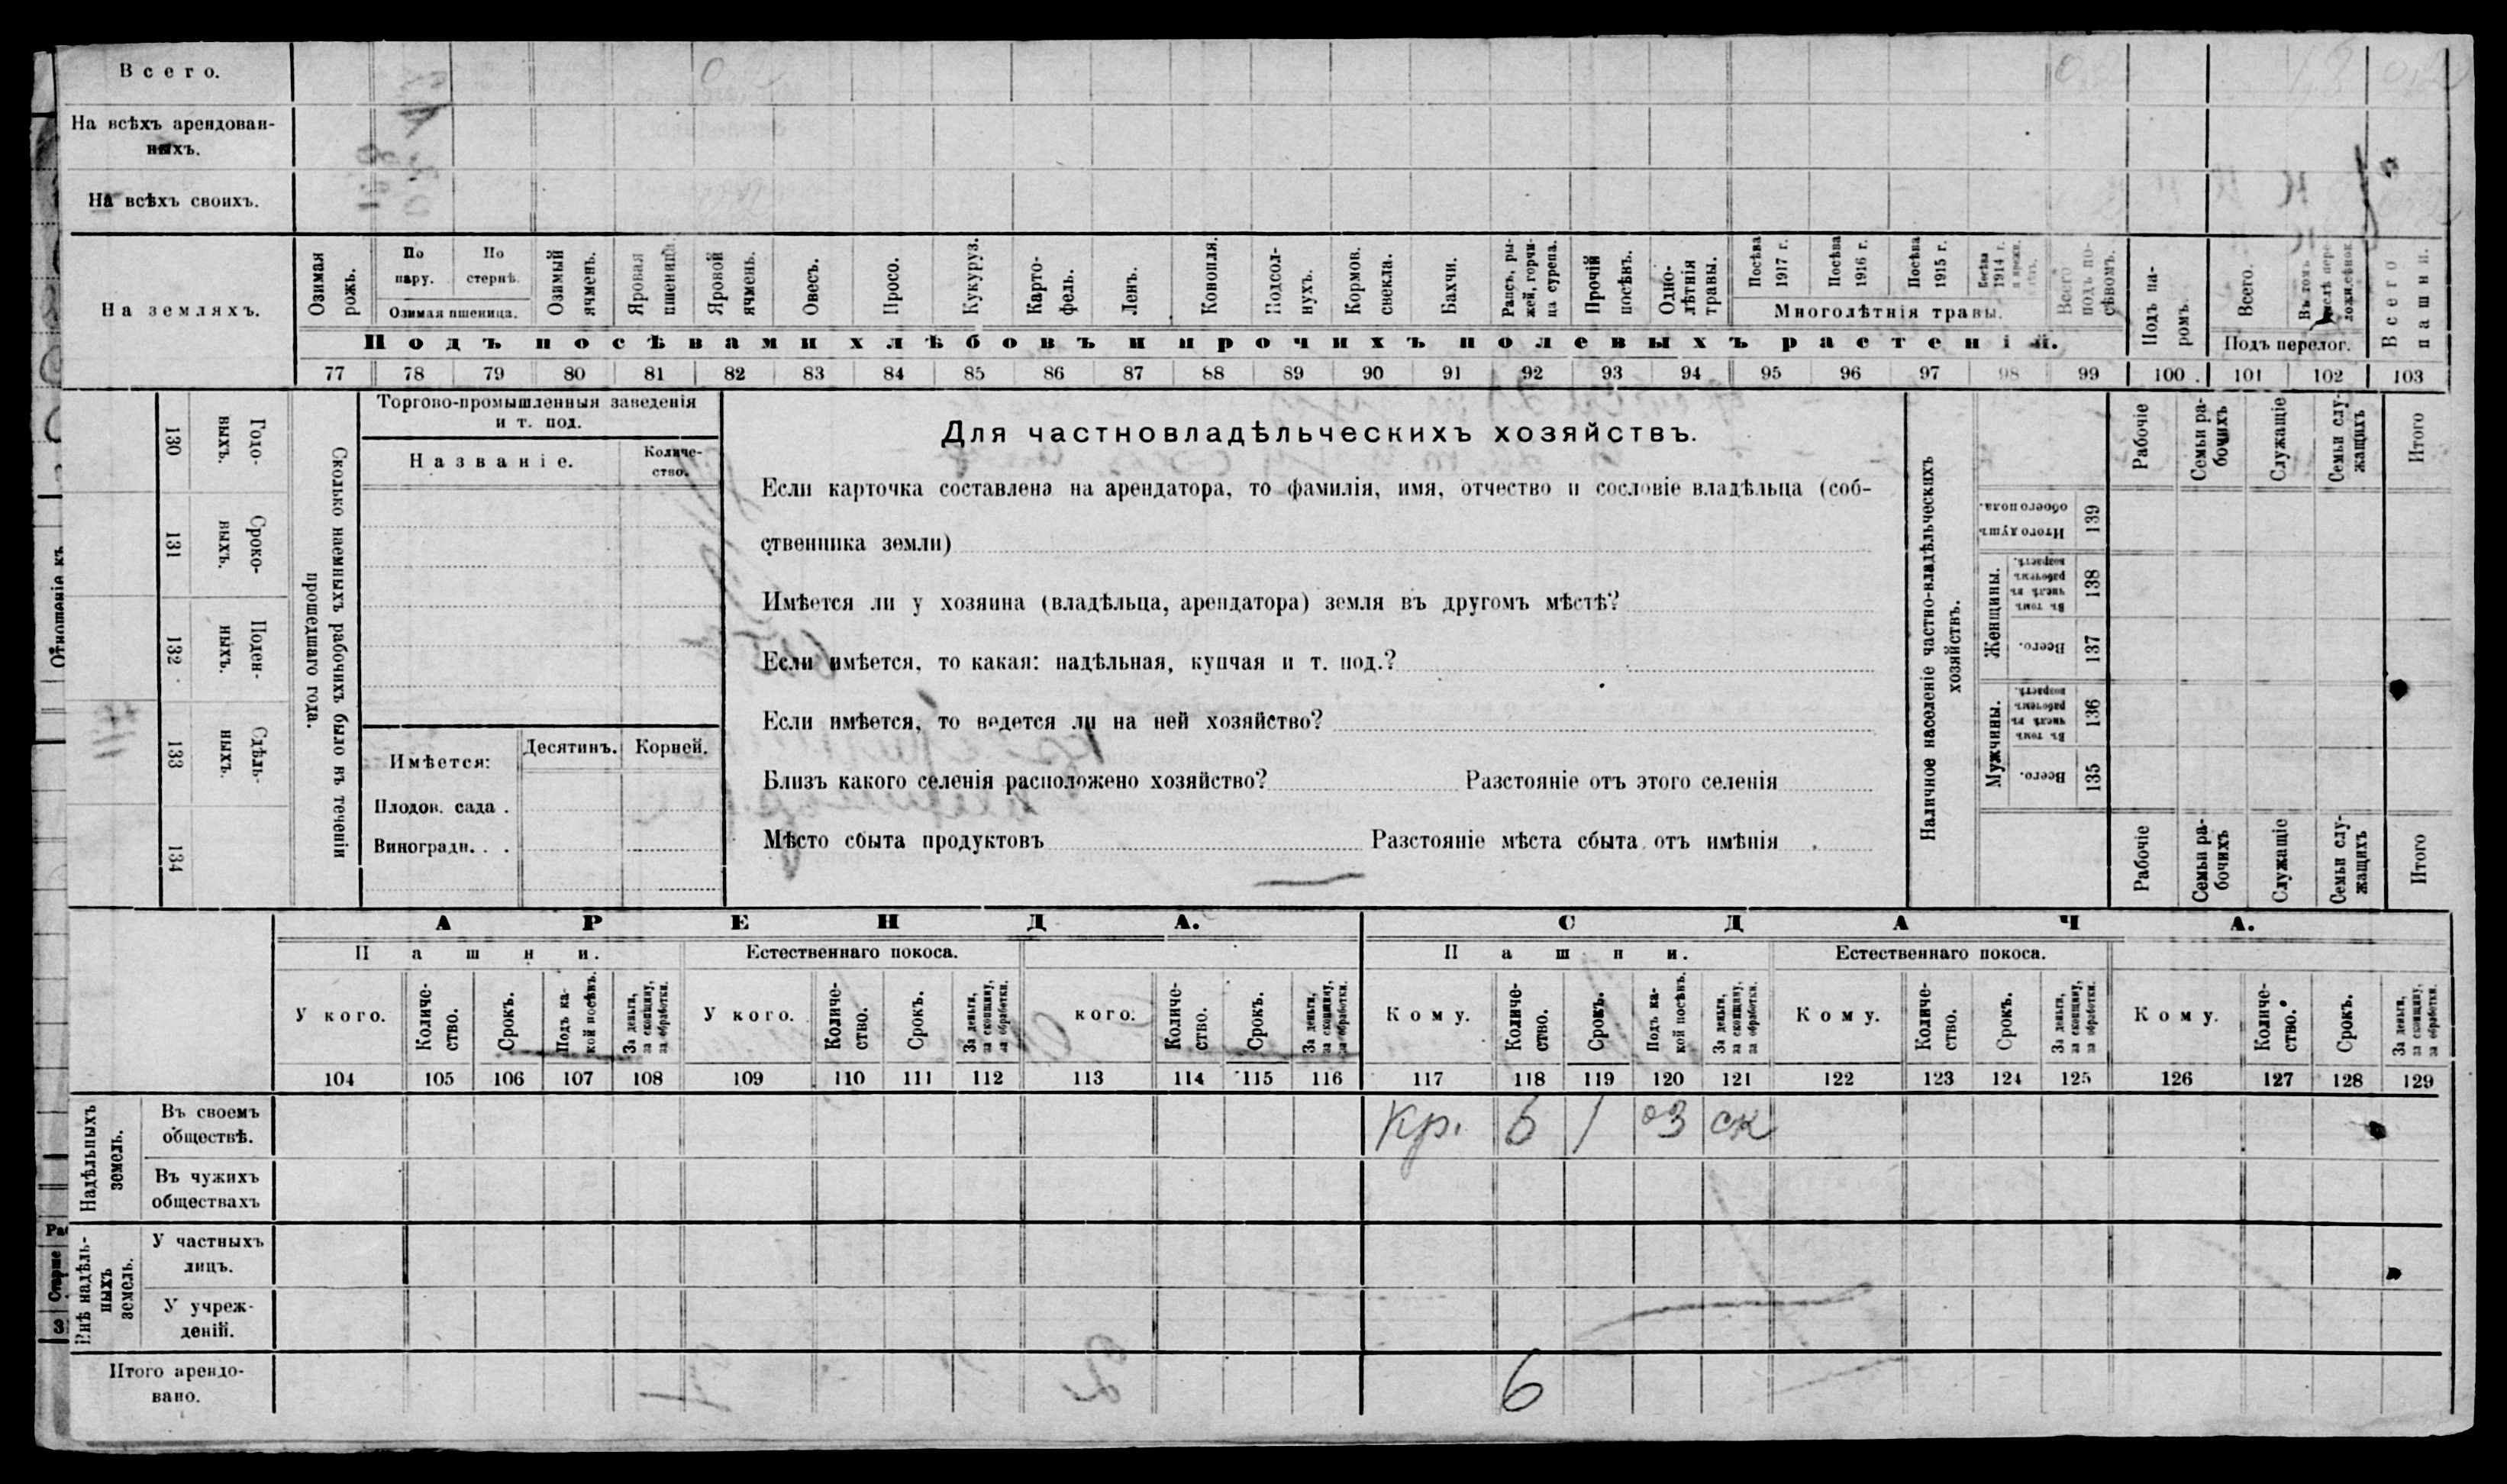 Всего.
На всѣхъ арендован-
ныхъ.
На всѣхъ своихъ.
На земляхъ.
Озимая рожь.
По пару.
По стернѣ.
Озимая пшеница.
Озимый ячмень.
Яровая пшеница.
Яровой ячмень.
Овесъ.
Просо.
Кукуруз.
Карто-
фель.
Ленъ.
Конопля.
Подсол-
нухъ.
Кормов. свекла.
Бахчи.
Рапсъ, ры-
жей, горчи-
ца сурепа.
Прочій посѣвъ.
Одно-
лѣтнія травы.
Посѣва 1917 г.
Посѣва 1916 г.
Посѣва 1915 г.
Посѣва 1914 г.
Многолѣтнія травы.
Всего подъ по-
сѣвомъ.
Подъ па-
ромъ.
Всего.
Въ томъ числѣ
Подъ перелог.
Всего пашни.
Подъ посѣвами хлѣбовъ и прочихъ полевыхъ растеній.
77 78 79 80 81 82 83 84 85 86 87 88 89 90 91 92 93 94 95 96 97 98 99 100 101 102 103
Годо-
выхъ.
130
Сроко-
выхъ.
131
Поден-
ныхъ.
132
Сдѣль-
ныхъ.
133
134
Сколько наемныхъ рабочихъ было въ теченіи
прошедшаго года.
Торгово-промышленныя заведенія
и т. под.
Названіе.
Количе-
ство.
Имѣется:
Десятинъ.
Корней.
Плодов. сада .
Виноградн. . .
Для частновладѣльческихъ хозяйствъ.
Если карточка составлена на арендатора, то фамилія, имя, отчество и сословіе владѣльца (соб-
ственника земли)
Имѣется ли у хозяина (владѣльца, арендатора) земля въ другомъ мѣстѣ?
Если имѣется, то какая: надѣльная, купчая и т. под.?
Если имѣется, то ведется ли на ней хозяйство?
Близъ какого селенія расположено хозяйство? Разстояніе отъ этого селенія
Мѣсто сбыта продуктовъ Разстояніе мѣста сбыта отъ имѣнія
Наличное населеніе частно-владѣльческихъ
хозяйствъ.
Рабочіе
Семьи ра-
бочихъ
Служащіе
Семьи слу-
жащихъ
Итого
Итого душъ
обоего пола.
139
Женщины.
Въ томъ числѣ въ рабочемъ возрастѣ.
138
Всего.
137
Мужчины.
Въ томъ числѣ въ рабочемъ возрастѣ.
136
Всего.
135
Рабочіе
Семьи ра-
бочихъ
Служащіе
Семьи слу-
жащихъ
Итого
АРЕНДА.
СДАЧА.
Пашни.
Естественнаго покоса.
Пашни.
Естественнаго покоса.
У кого.
Количе-
ство.
Срокъ.
Подъ ка-
кой посѣвъ.
За деньги,
за скопщину,
за обработки.
У кого.
Количе-
ство.
Срокъ.
За деньги,
за скопщину,
за обработки.
кого.
Количе-
ство.
Срокъ.
За деньги,
за скопщину,
за обработки.
Кому.
Количе-
ство.
Срокъ.
Подъ ка-
кой посѣвъ.
За деньги,
за скопщину,
за обработки.
Кому.
Количе-
ство.
Срокъ.
За деньги,
за скопщину,
за обработки.
Кому.
Количе-
ство.
Срокъ.
За деньги,
за скопщину,
за обработки.
104 105 106 107 108 109 110 111 112 113 114 115 116 117 118 119 120 121 122 123 124 125 126 127 128 129
Надѣльныхъ
земель.
Въ своемъ
обществѣ.
кр. 6 1 оз ск
Въ чужихъ
обществахъ
Внѣ надѣль-
ныхъ
земель.
У частныхъ
лицъ.
У учреж-
деній.
Итого арендо-
вано.
6